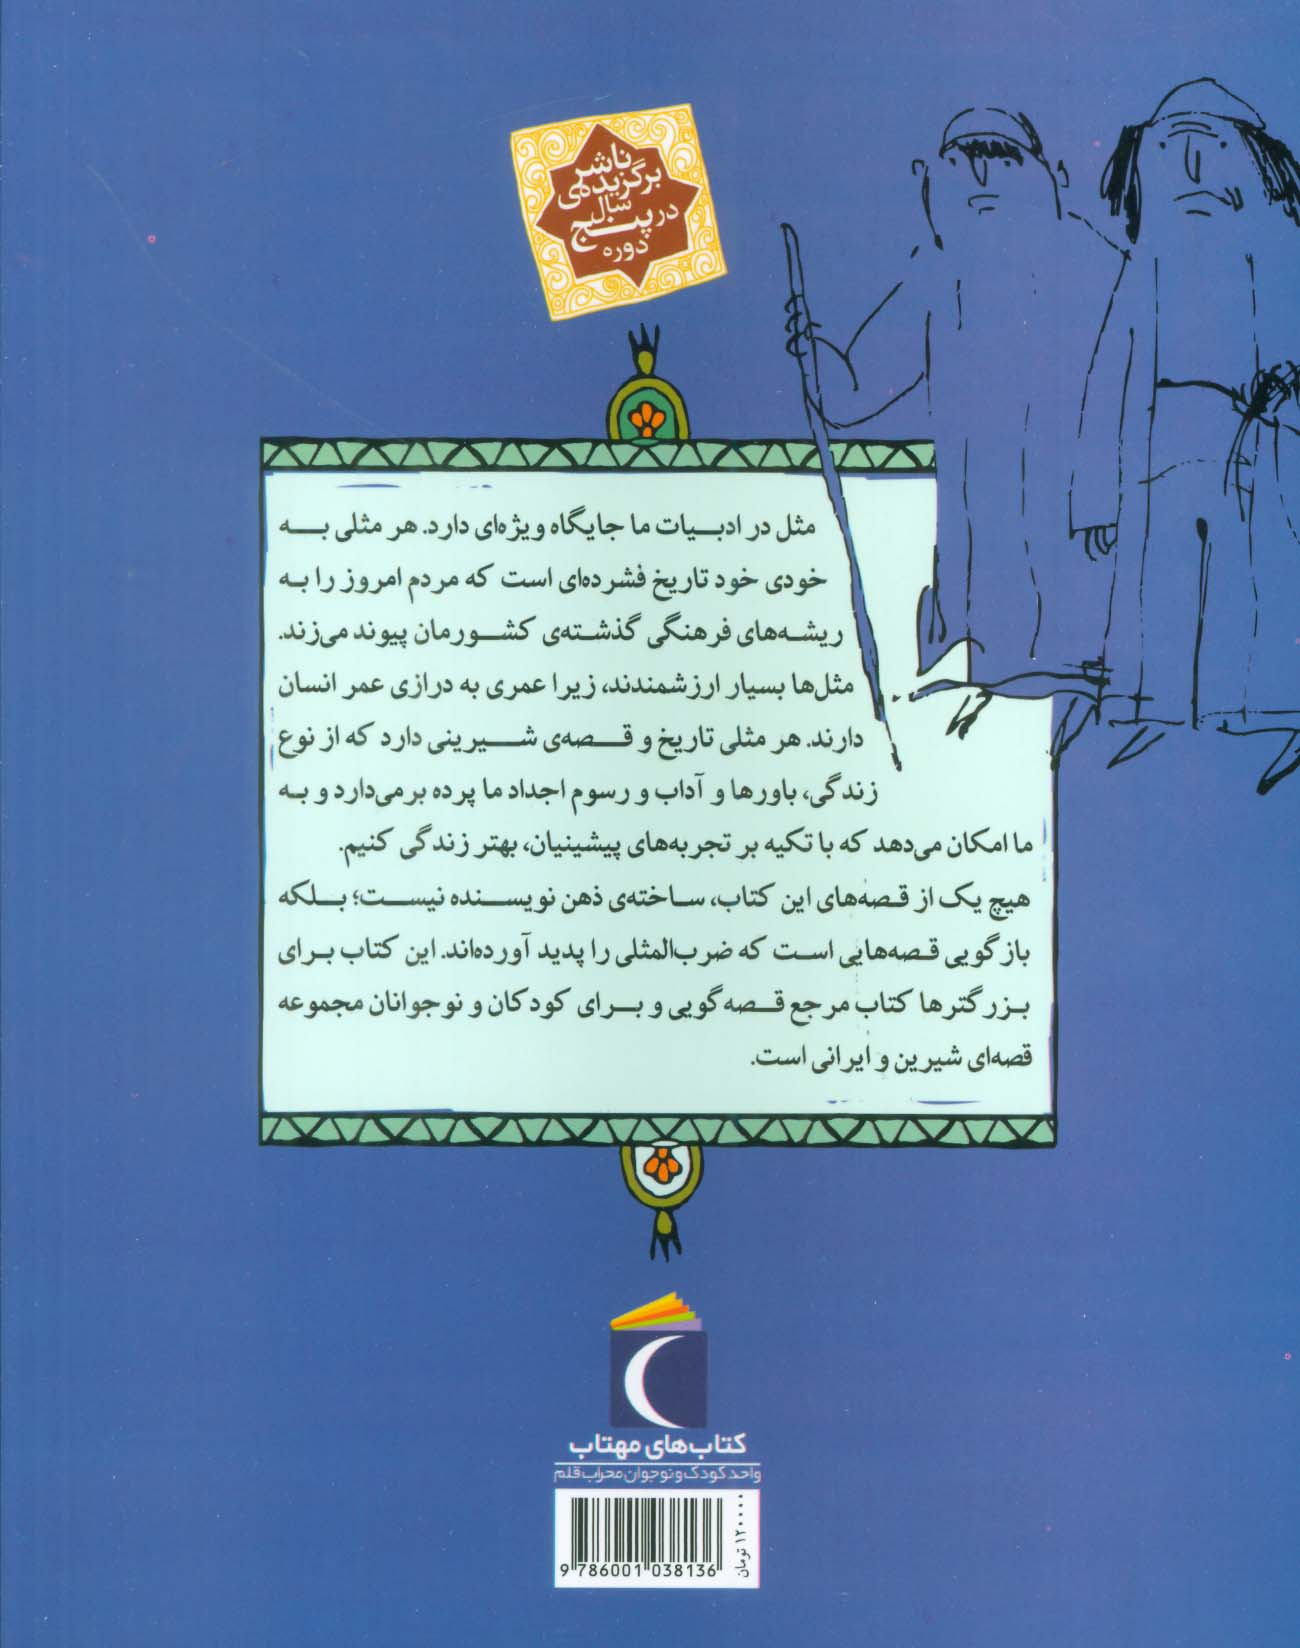 ناشر
برگزیده‌ی
سال
در پنج
دوره
مثل در ادبیات ما جایگاه ویژه‌ای دارد. هر مثلی به
خودی خود تاریخ فشرده‌ای است که مردم امروز را به
ریشه‌های فرهنگی گذشته‌ی کشورمان پیوند می‌زند.
مثل‌ها بسیار ارزشمندند، زیرا عمری به درازی عمر انسان
دارند. هر مثلی تاریخ و قصه‌ی شیرینی دارد که از نوع
زندگی، باورها و آداب و رسوم اجداد ما پرده برمی‌دارد و به
ما امکان می‌دهد که با تکیه بر تجربه‌های پیشینیان، بهتر زندگی کنیم.
هیچ یک از قصه‌های این کتاب، ساخته‌ی ذهن نویسنده نیست؛ بلکه
بازگویی قصه‌هایی است که ضرب‌المثلی را پدید آورده‌اند. این کتاب برای
بزرگترها کتاب مرجع قصه‌گویی و برای کودکان و نوجوانان مجموعه
قصه‌ای شیرین و ایرانی است.
کتاب‌های مهتاب
واحد کودک و نوجوان محراب قلم
۱۲۰۰۰۰ تومان
9 786001 038136